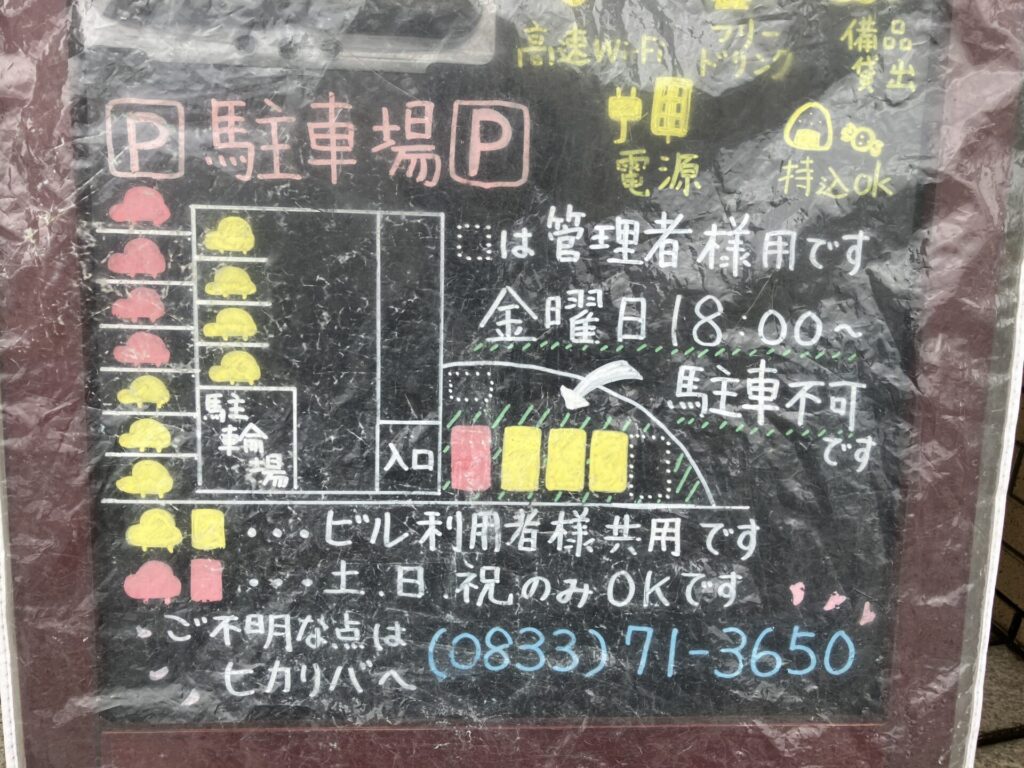 高速WiFi
フリー
ドリンク
備品
貸出
電源
持込OK
P 駐車場 P
は管理者様用です
金曜日18:00~
駐車不可
です
駐
輪
場
入口
・・・ビル利用者様共用です
・・・土.日.祝のみOKです
ご不明な点は
ヒカリバへ
(0833)71-3650